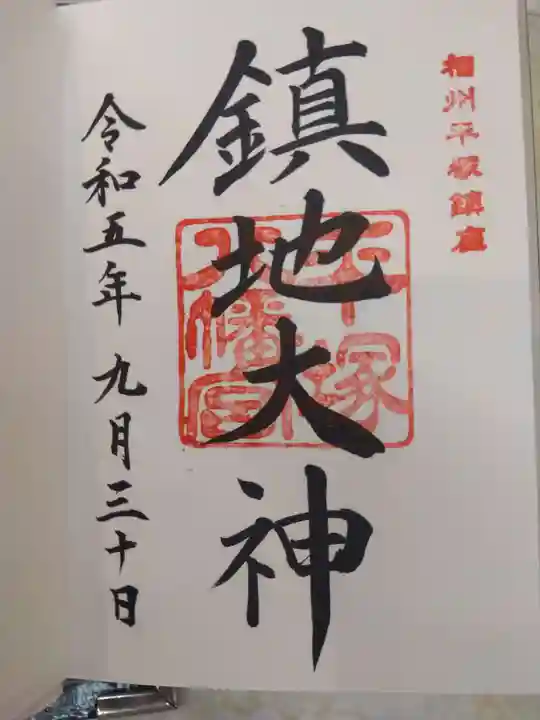 相州平塚鎮座
鎮地大神
平塚八幡宮
令和五年九月三十日